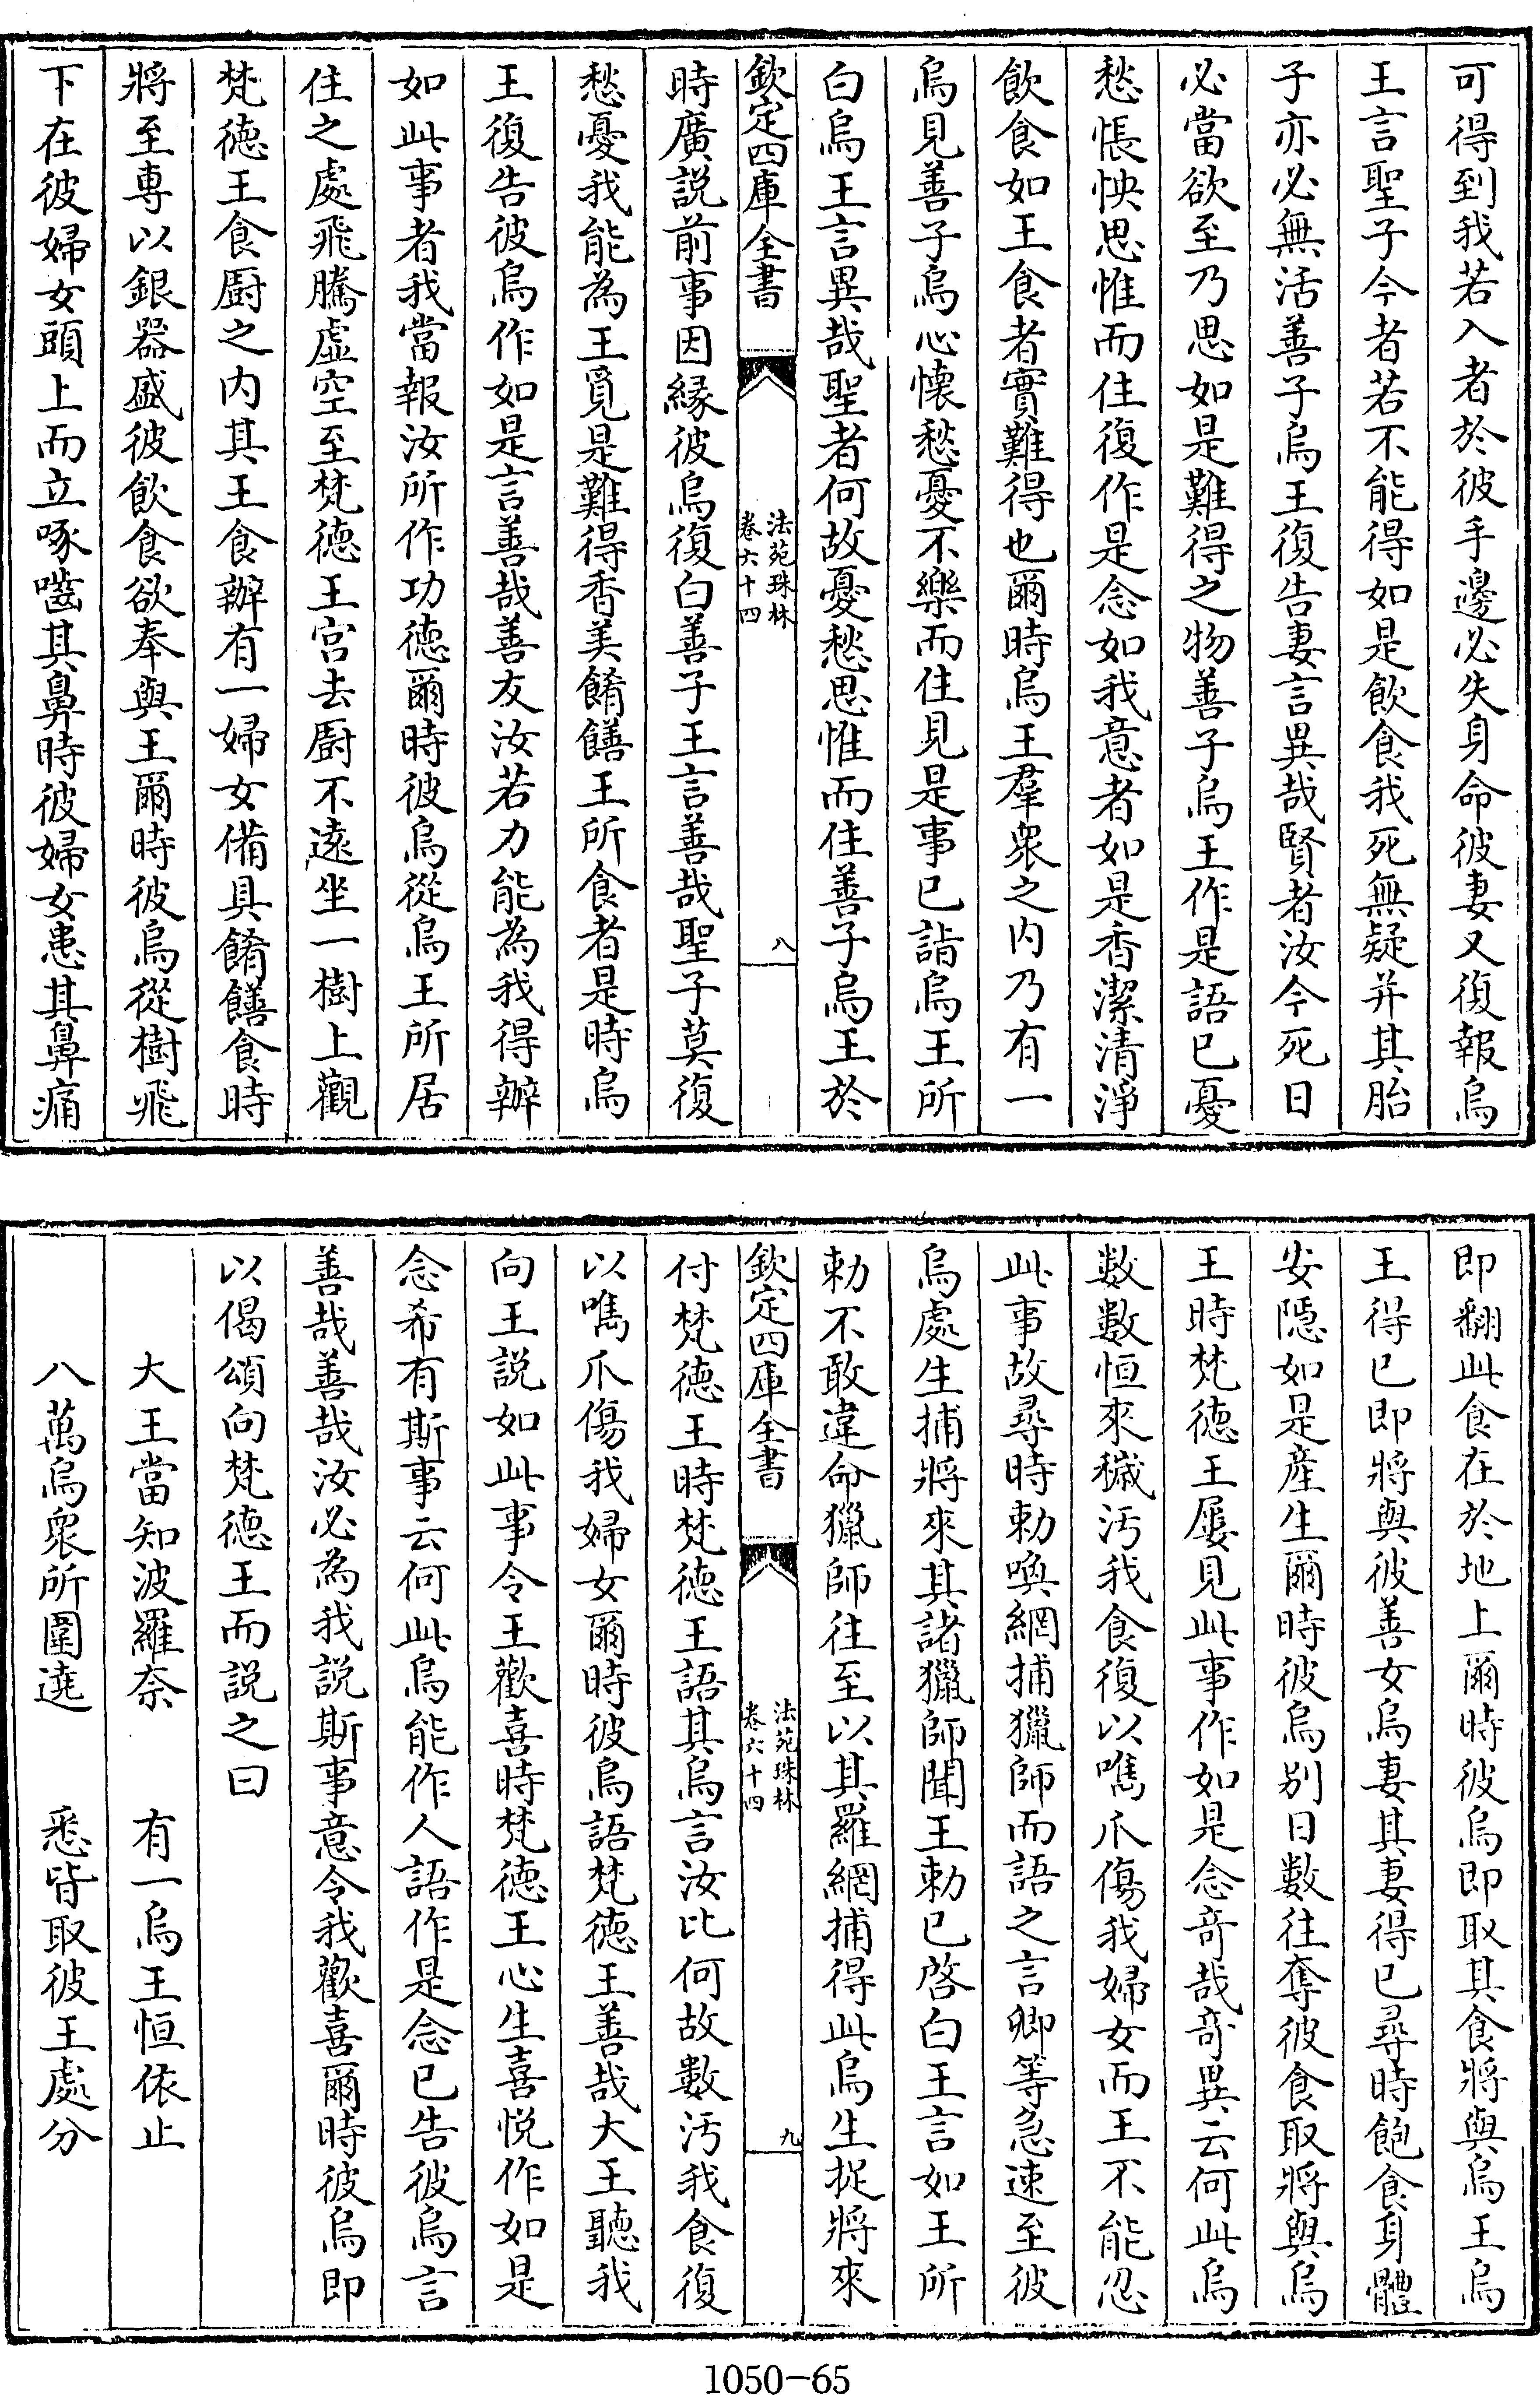 可得到我若入者於彼手邊必失身命彼妻又復報烏
王言聖子今者若不能得如是飲食我死無疑并其胎
子亦必無活善子烏王復告妻言異哉賢者汝今死日
必當欲至乃思如是難得之物善子烏王作是語已憂
愁悵怏思惟而住復作是念如我意者如是香潔清淨
飲食如王食者實難得也爾時烏王羣衆之内乃有一
烏見善子烏心懐愁憂不樂而住見是事已詣烏王所
白烏王言異哉聖者何故憂愁思惟而住善子烏王於
欽定四庫全書
法苑珠林
卷六十四
八
時廣説前事因縁彼烏復白善子王言善哉聖子莫復
愁憂我能為王覓是難得香美餚饍王所食者是時烏
王復告彼烏作如是言善哉善友汝若力能為我得辦
如此事者我當報汝所作功徳爾時彼烏從烏王所居
住之處飛騰虛空至梵徳王宫去厨不遠坐一樹上觀
梵徳王食厨之内其王食辦有一婦女備具餚饍食時
將至専以銀器盛彼飲食欲奉與王爾時彼烏從樹飛
下在彼婦女頭上而立啄嚙其鼻時彼婦女患其鼻痛
即翻此食在於地上爾時彼烏即取其食將與烏王烏
王得已即將與彼善女烏妻其妻得已尋時飽食身體
安隠如是産生爾時彼烏别日數往奪彼食取將與烏
王時梵徳王屢見此事作如是念奇哉奇異云何此烏
數數恒來穢汚我食復以嘴爪傷我婦女而王不能忍
此事故尋時勅喚網捕獵師而語之言卿等急速至彼
烏處生捕將來其諸獵師聞王勅已啓白王言如王所
勅不敢違命獵師往至以其羅網捕得此烏生捉將來
欽定四庫全書
法苑珠林
卷六十四
九
付梵徳王時梵徳王語其烏言汝比何故數汚我食復
以嘴爪傷我婦女爾時彼烏語梵徳王善哉大王聽我
向王説如此事令王歡喜時梵徳王心生喜悦作如是
念希有斯事云何此烏能作人語作是念已告彼烏言
善哉善哉汝必為我説斯事意令我歡喜爾時彼烏即
以偈頌向梵徳王而説之曰
大王當知波羅奈　有一烏王恒依止
八萬烏衆所圍遶　悉皆取彼王處分
1050-65